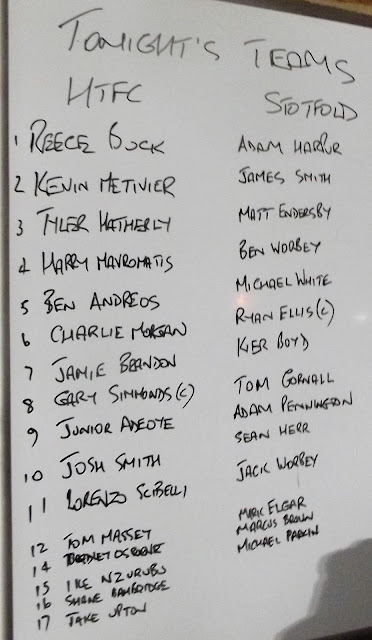 TONIGHT'S TEAMS
HTFC STOTFOLD
1 REECE BUCK ADAM HARPUR
2 KEVIN METIVIER JAMES SMITH
3 TYLER HATHERLY MATT ENDERSBY
4 HARRY MAVROMATIS BEN WORBEY
5 BEN ANDREOS MICHAEL WHITE
6 CHARLIE MORGAN RYAN ELLIS (C)
7 JAMIE BRANDON KIER BOYD
8 GARY SIMMONDS (C) TOM GORNALL
9 JUNIOR ADEOYE ADAM PENNINGTON
10 JOSH SMITH SEAN HERR
11 LORENZO SCIBELLI JACK WORBEY
12 TOM MASSEY MARC ELGAR
14 OSBORNE MARCUS BROWN
15 IKE NZURUBU MICHAEL PARKIN
16 SHANE BAMBRIDGE
17 JAKE UPTON